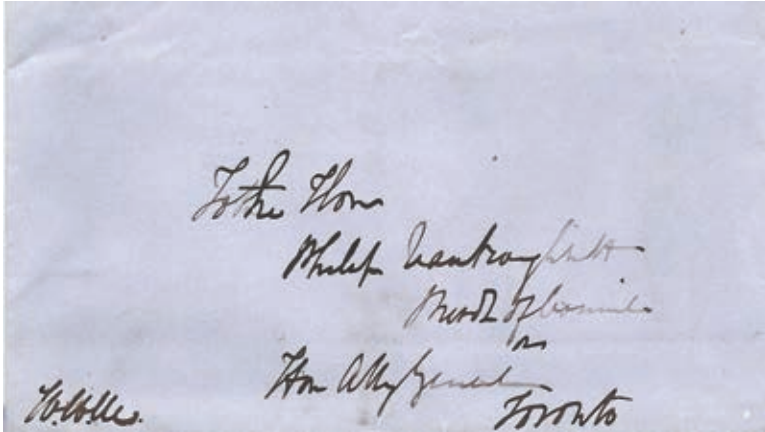 To the Hon
Philip Vankoughnett
Presdt of Council
or
Hon Atty General
Toronto